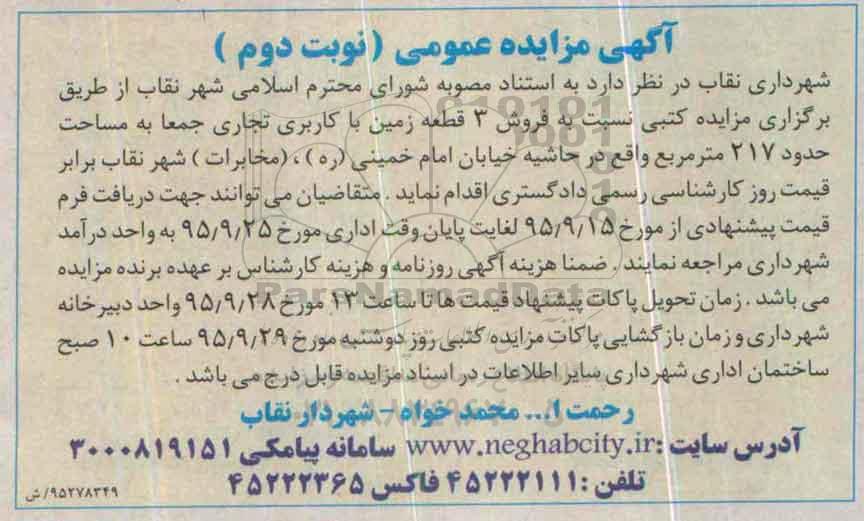 آگهی مزایده عمومی (نوبت دوم )
شهرداری نقاب در نظر دارد به استناد مصوبه شورای محترم اسلامی شهر نقاب از طریق
برگزاری مزایده کتبی نسبت به فروش ۳ قطعه زمین با کاربری تجاری جمعا به مساحت
حدود ۲۱۷ مترمربع واقع در حاشیه خیابان امام خمینی (ره ) ، (مخابرات ) شهر نقاب برابر
قیمت روز کارشناسی رسمی دادگستری اقدام نماید . متقاضیان می توانند جهت دریافت فرم
قیمت پیشنهادی از مورخ ۹۵/۹/۱۵ لغایت پایان وقت اداری مورخ ۹۵/۹/۲۵ به واحد درآمد
شهرداری مراجعه نمایند . ضمنا هزینه آگهی روزنامه و هزینه کارشناس بر عهده برنده مزایده
می باشد . زمان تحویل پاکات پیشنهاد قیمت ها تا ساعت ۱۳ مورخ ۹۵/۹/۲۸ واحد دبیرخانه
شهرداری و زمان بازگشایی پاکات مزایده کتبی روز دوشنبه مورخ ۹۵/۹/۲۹ ساعت ۱۰ صبح
ساختمان اداری شهرداری سایر اطلاعات در اسناد مزایده قابل درج می باشد .
رحمت ا... محمد خواه - شهردار نقاب
آدرس سایت :www.neghabcity.ir سامانه پیامکی ۳۰۰۰۸۱۹۱۵۱
تلفن : ۴۵۲۲۲۱۱۱ فاکس ۴۵۲۲۲۳۶۵
۹۵۲۷۸۳۴۹/ش
ParsNamadData